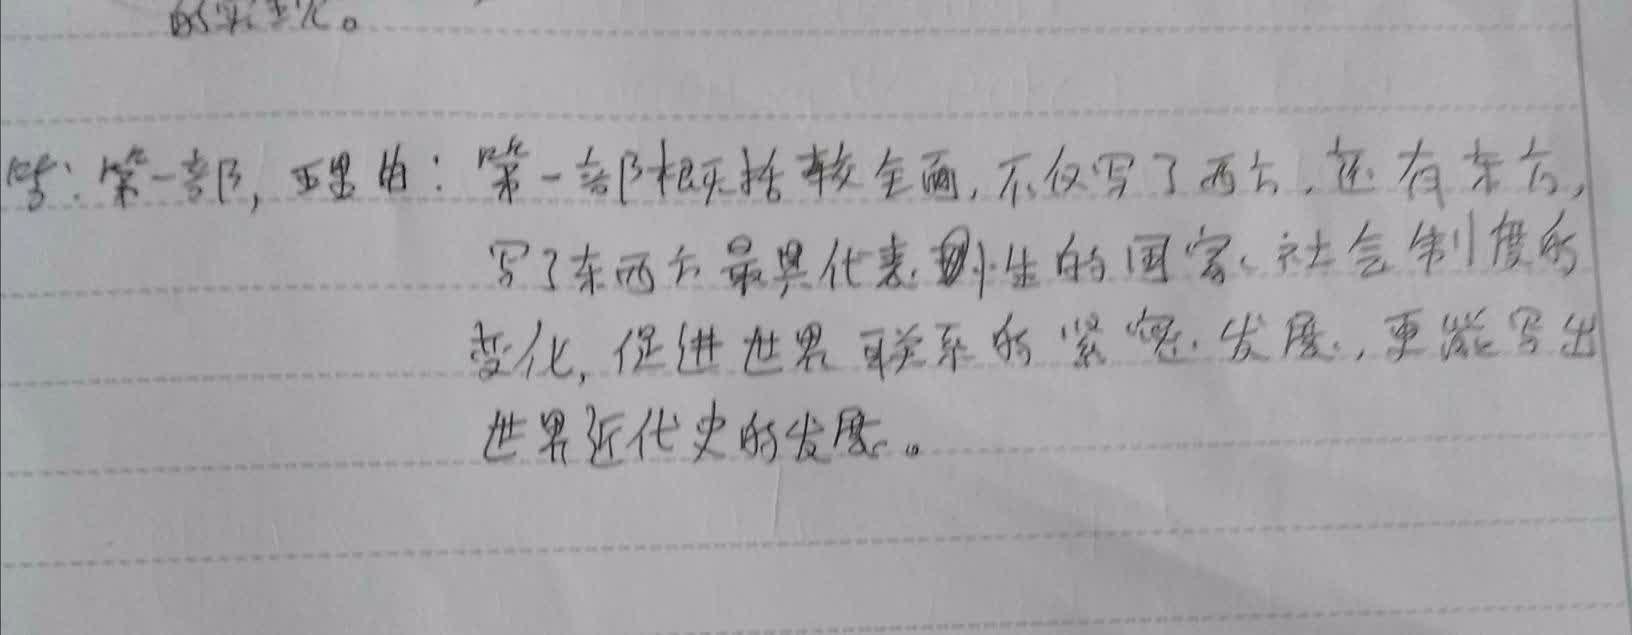 答：第一部，理由：第一部概括较全面，不仅写了西方，还有东方，
写了东西方最具代表性的国家、社会制度的
变化，促进世界联系的紧密发展，更能写出
世界近代史的发展。